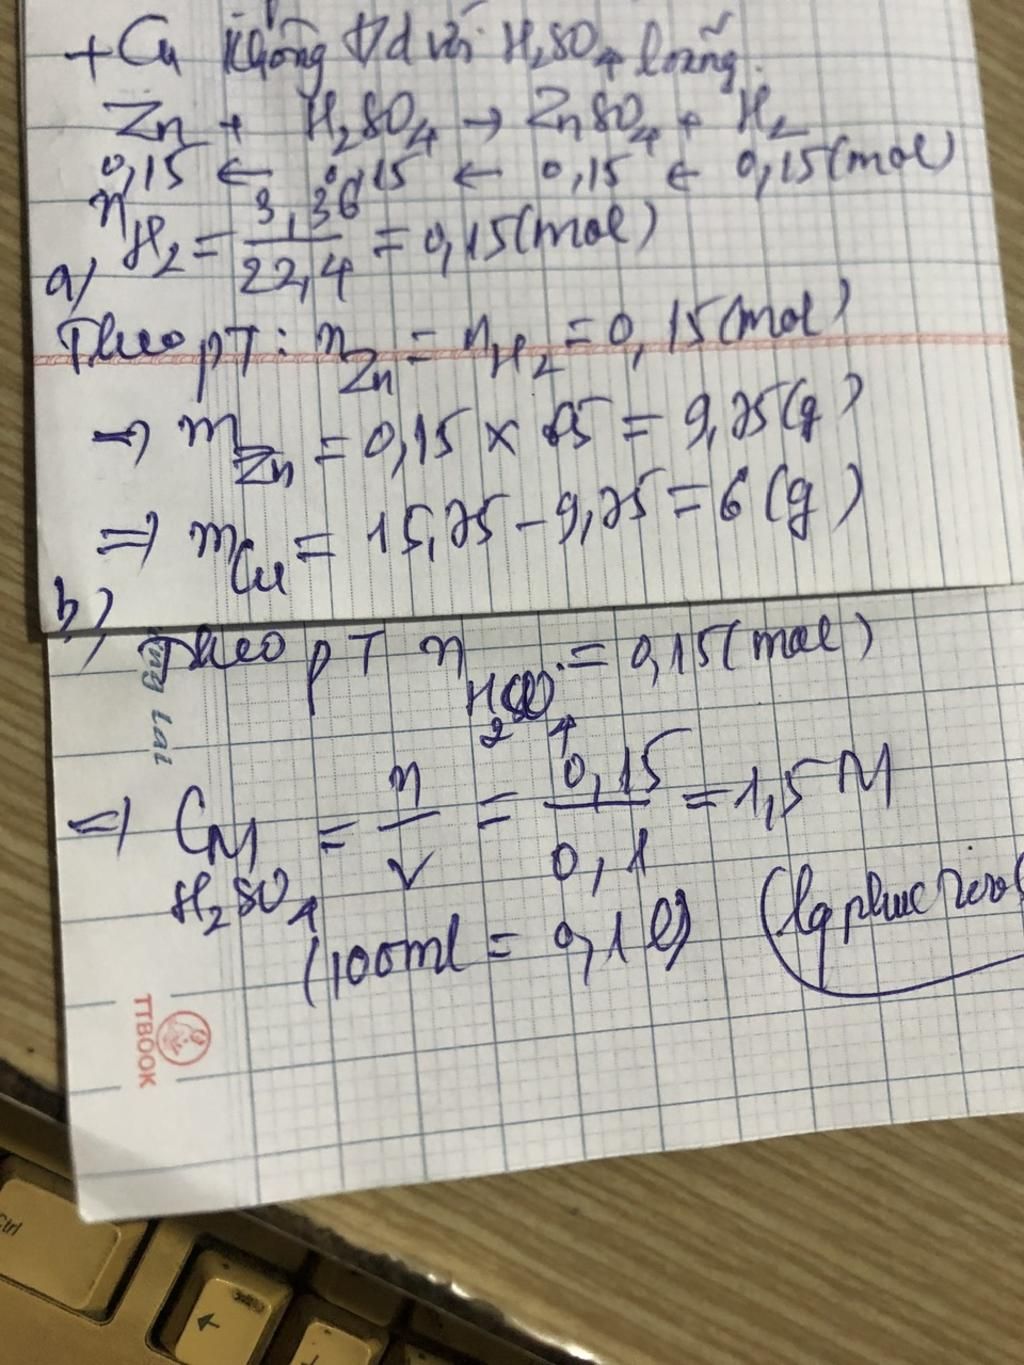 + Cu không td với H₂SO₄ loãng.
Zn + H₂SO₄ → ZnSO₄ + H₂
0,15 ← 0,15 ← 0,15 ← 0,15 (mol)
n H₂ = 3,36 / 22,4 = 0,15 (mol)
a/
Theo pT: n Zn = n H₂ = 0,15 (mol)
→ m Zn = 0,15 × 65 = 9,75 (g)
⇒ m Cu = 15,75 - 9,75 = 6 (g)
b/
Theo pT n H₂SO₄ = 0,15 (mol)
⇒ CM H₂SO₄ = n / V = 0,15 / 0,1 = 1,5 M
(100ml = 0,1 l)
TTBOOK
Ctrl
←